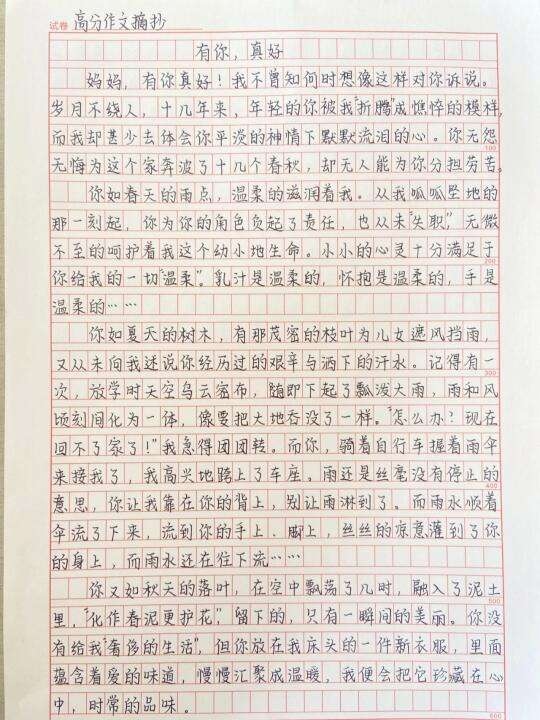 试卷 高分作文摘抄
有你，真好
妈妈，有你真好！我不曾知何时想像这样对你诉说。
岁月不绕人，十几年来，年轻的你被我"折腾"成憔悴的模样，
而我却甚少去体会你平淡的神情下默默流泪的心。你无怨
100
无悔为这个家奔波了十几个春秋，却无人能为你分担劳苦。
你如春天的雨点，温柔的滋润着我。从我呱呱坠地的
那一刻起，你为你的角色负起了责任，也从未"失职"，无微
不至的呵护着我这个幼小地生命。小小的心灵十分满足于
200
你给我的一切"温柔"。乳汁是温柔的，怀抱是温柔的，手是
温柔的……
你如夏天的树木，有那茂密的枝叶为儿女遮风挡雨，
又从未向我述说你经历过的艰辛与洒下的汗水。记得有一
300
次，放学时天空乌云密布，随即下起了瓢泼大雨，雨和风
顷刻间化为一体，像要把大地吞没了一样。"怎么办？现在
回不了家了！"我急得团团转。而你，骑着自行车握着雨伞
来接我了，我高兴地跨上了车座。雨还是丝毫没有停止的
400
意思，你让我靠在你的背上，别让雨淋到了。而雨水顺着
伞流了下来，流到你的手上、脚上，丝丝的凉意灌到了你
的身上，而雨水还在往下流……
你又如秋天的落叶，在空中飘荡了几时，融入了泥土
500
里，"化作春泥更护花"，留下的，只有一瞬间的美丽。你没
有给我"奢侈的生活"，但你放在我床头的一件新衣服，里面
蕴含着爱的味道，慢慢汇聚成温暖，我便会把它珍藏在心
中，时常的品味。
600